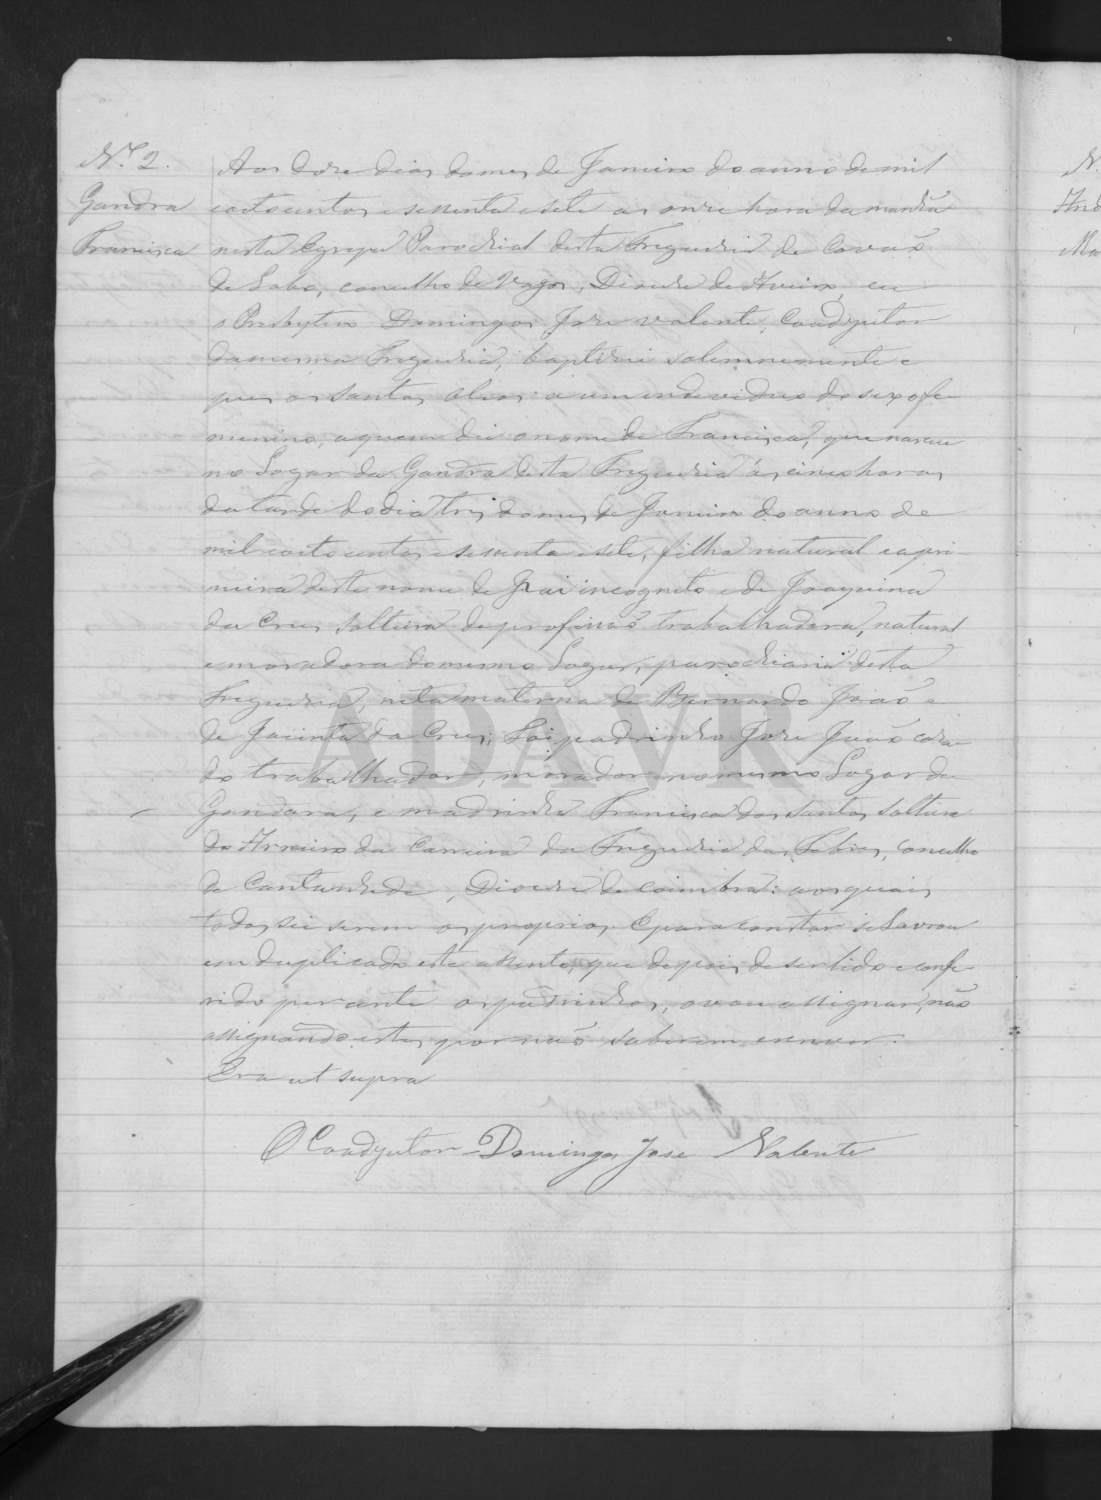 N.º 2.
Gandra
Francisca
Aos doze dias do mes de Janeiro do anno de mil
e oito centos e sessenta e sete as onze hora da manhã
nesta Egreja Parochial desta Freguezia de Covaõ
de Lobo, concelho de Vagos, Diocese de Aveiro, eu
o Presbytero Domingos Jose Valente, Coadjutor
da mesma Freguezia, baptizei solemnemente e
pus os santos oleos a um individuo do sexo fe
menino, a quem dei o nome de Francisca, que nasceu
no Logar da Gandra desta Freguezia ás cinco horas
da tarde do dia tres do mes de Janeiro do anno de
mil e oito centos e sessenta e sete, filha natural e a pri
meira deste nome de Pai incognito e de Joaquina
da Cruz solteira de profissaõ trabalhadora, natural
e moradora do mesmo Logar, parochiana desta
Freguezia, neta materna de Bernardo Joaõ e
de Jacinta da Cruz; Foi padrinho Jose Joaõ casa
do trabalhador, morador no mesmo Logar da
Gandara, e madrinha Francisca dos Santos solteira
do Arneiro da Carreira da Freguezia das Febres, concelho
de Cantanhede, Diocese de Coimbra: aos quais
todos sei serem os proprios. E para constar se Lavrou
em duplicado este assento, que depois de ser lido e confe
rido perante os padrinhos, o vou assignar, naõ
assignando estes por naõ saberem escrever.
Era ut supra
O Coadjutor Domingos Jose Valente
ADAVR
N.
And
Ma